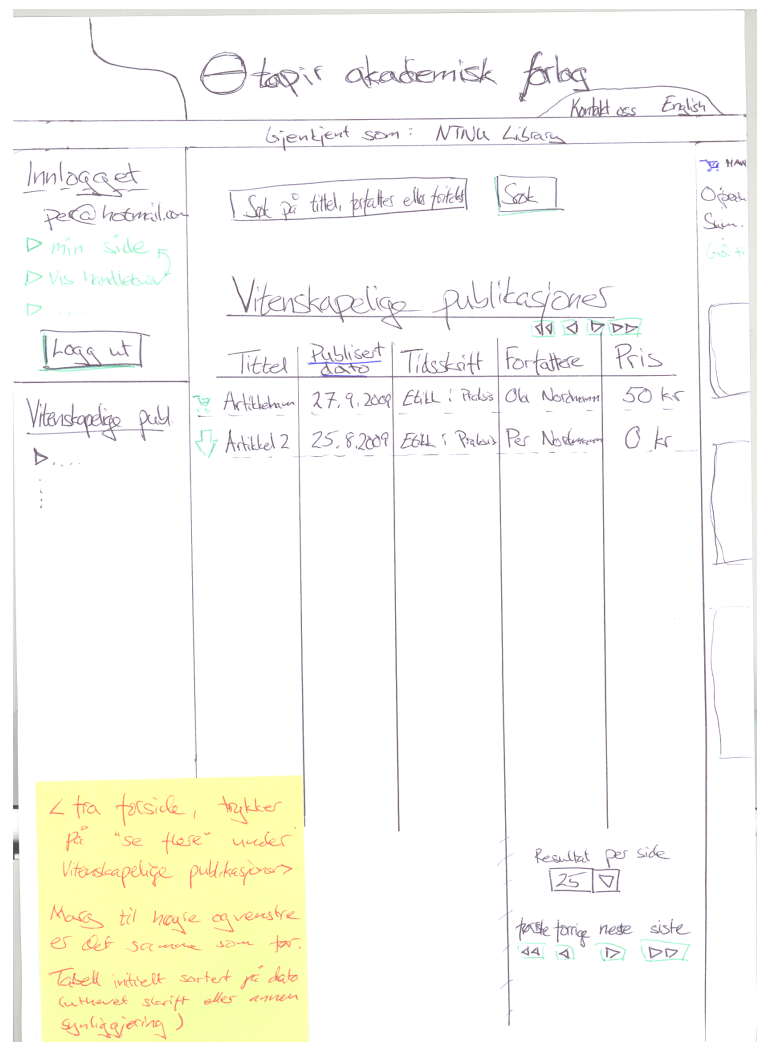 tapir akademisk forlag
Kontakt oss English
Gjenkjent som: NTNU Library
Innlogget
per@hotmail.com
min side
Vis handlekurv
.....
Logg ut
Vitenskapelige publ.
.....
Søk på tittel, forfatter eller
Søk
HAN
Sum.
Gå ti
Vitenskapelige publikasjoner
Tittel Publisert dato Tidsskrift Forfattere Pris
Artikkelnavn 27.9.2009 Etikk i Praksis Ola Nordmann 50 kr
Artikkel 2 25.8.2009 Etikk i Praksis Per Nordmann 0 kr
Resultat per side
25
første forrige neste siste
< fra forside, trykker
på "se flere" under
Vitenskapelige publikasjoner>
Marg til høyre og venstre
er det samme som før.
Tabell initielt sortert på dato
(uthevet skrift eller annen
synliggjøring)